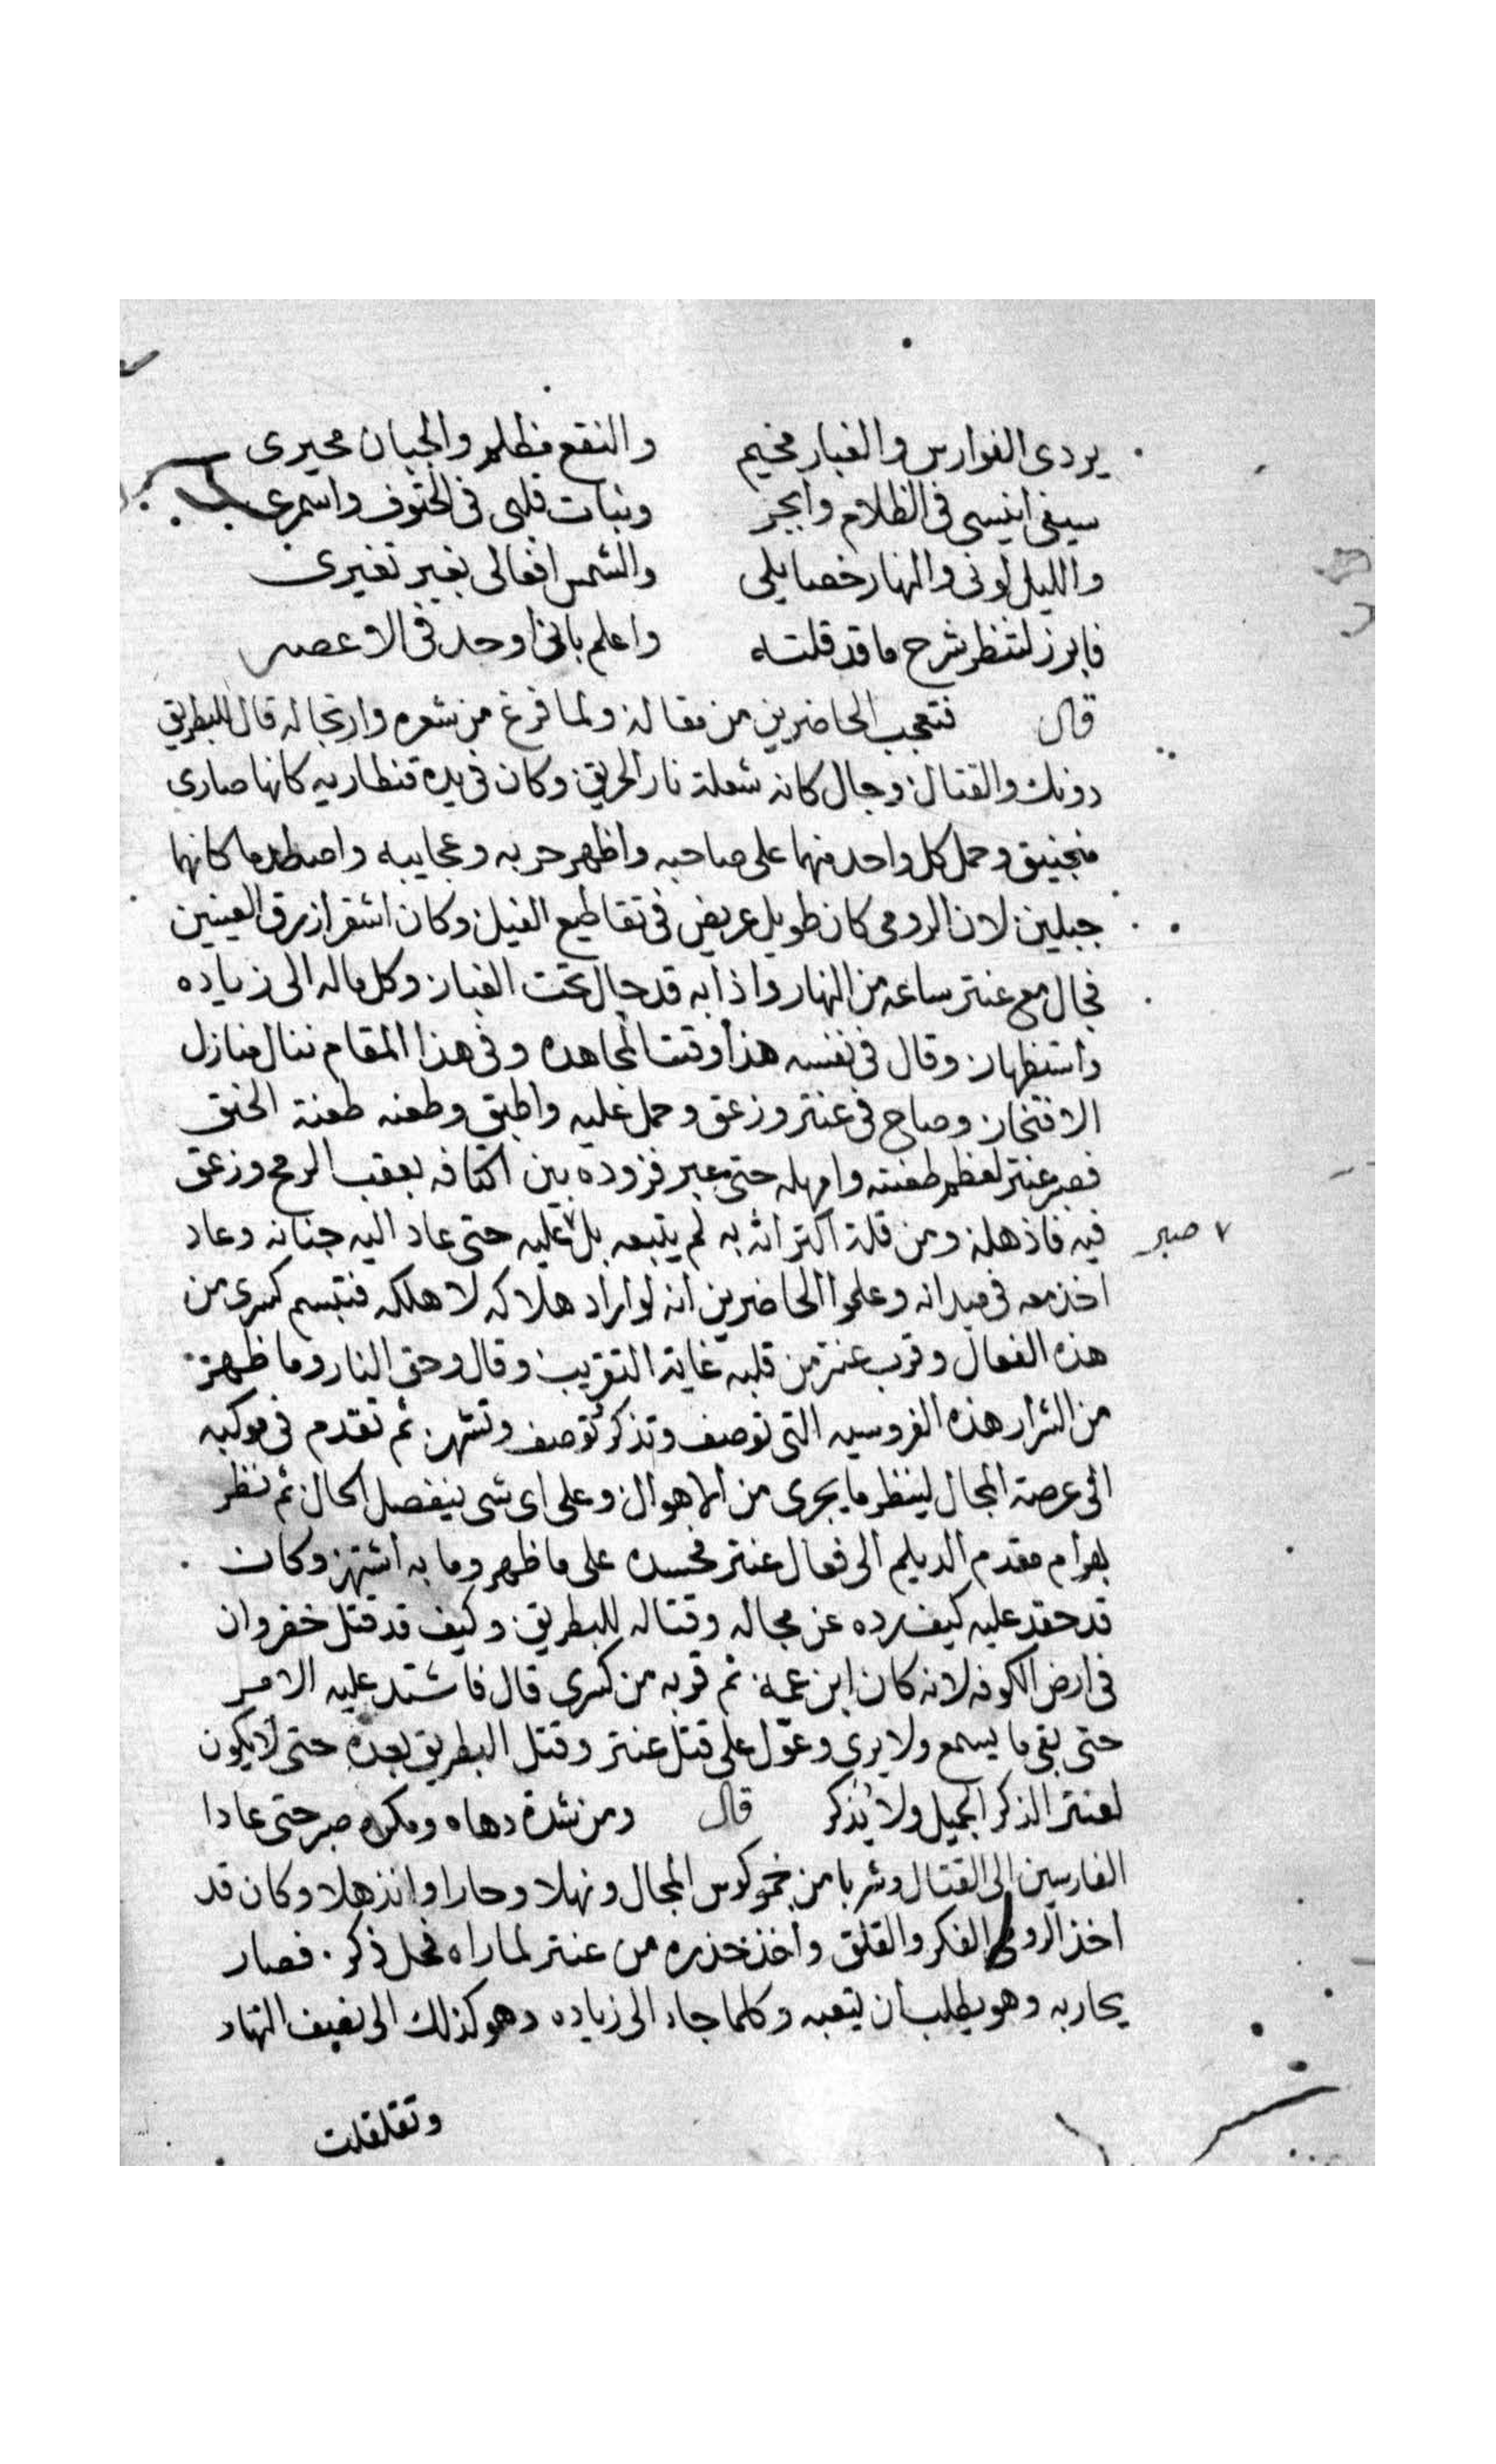 يردى الفوارس والغبار مخيم والنقع مظلم والجبان محيرى
سيفى انيسى فى الظلام وابجر وثبات قلبى فى الحتوف واسمرى
والليل لونى والنهار خصايلى والشمس افعالى بغير تغيرى
فابرز لتنظر شرح ما قد قلته واعلم بانى اوحد فى الاعصر
قال فتعجب الحاضرين من مقاله ولما فرغ من شعره وارتجاله قال للبطريق
دونك والقتال وجال كانه شعلة نار الحريق وكان فى يده قنطاريه كانها صارى
منجنيق وحمل كل واحد منهما على صاحبه واظهر حربه وعجايبه واصطدما كانهما
جبلين لان الرومى كان طويل عريض فى تقاطيع الفيل وكان اشقر ازرق العينين
فجال مع عنتر ساعه من النهار واذا به قد جال تحت الغبار وكل ماله الى زياده
واستظهار وقال فى نفسه هذا وقت المجاهده وفى هذا المقام ننال منازل
الافتخار وصاح فى عنتر وزعق وحمل عليه واطبق وطعنه طعنة الحنق
فصبر عنتر لعظم طعنته وامهله حتى عبر فزوده بين اكتافه بعقب الرمح وزعق
فيه فاذهله ومن قلة اكتراثه به لم يتبعه بل ٧ عليه حتى عاد اليه جنانه وعاد
٧ صبر
اخذ معه فى ميدانه وعلموا الحاضرين انه لو اراد هلاكه لاهلكه فتبسم كسرى من
هذه الفعال وقرب عنتر من قلبه غاية التقريب وقال وحق النار وما ظهر
من الشرار هذه الفروسيه التى توصف وتذكر توصف وتشهر ثم تقدم فى موكبه
الى عرصة المجال لينظر ما يجرى من الاهوال وعلى اى شى ينفصل الحال ثم نظر
بهرام مقدم الديلم الى فعال عنتر فحسده على ما ظهر وما به اشتهر وكان
قد حقد عليه كيف رده عن مجاله وقتاله للبطريق وكيف قد قتل خضروان
فى ارض الكوفه لانه كان ابن عمه ثم قربه من كسرى قال فاشتد عليه الامر
حتى بقى ما يسمع ولا يرى وعوّل على قتل عنتر وقتل البطريق بعده حتى لا يكون
لعنتر الذكر الجميل ولا يُذكر قال ومن شدة دهاه ومكره صبر حتى عادا
الفارسين الى القتال وشربا من خمر كوس المجال ونهلا وحارا وانذهلا وكان قد
اخذ الرومى الفكر والقلق واخذ حذره من عنتر لما راه فحل ذكر فصار
يحاربه وهو يطلب ان يتعبه وكلما جاء الى زياده وهو كذلك الى نصيف النهار
وتقلقلت